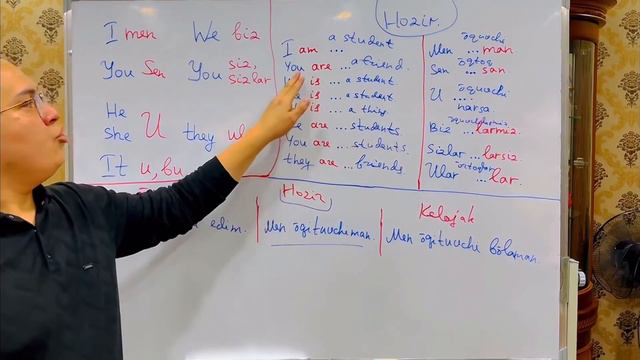 I men We biz
You Sen You siz, sizlar
He she U they
It u, bu
Hozir.
I am ... a student
You are ... a friend.
is ... a student
is ... a student
is ... a thing
are ... students
You are ... students.
they are ... friends
o'quvchi
Men ... man.
Sen ... san.
U ....
narsa
Biz ... larmiz.
Sizlar ... larsiz.
Ular ... lar.
edim.
Hozir
Men o'qituvchiman.
Kelajak
Men o'qituvchi bo'laman.